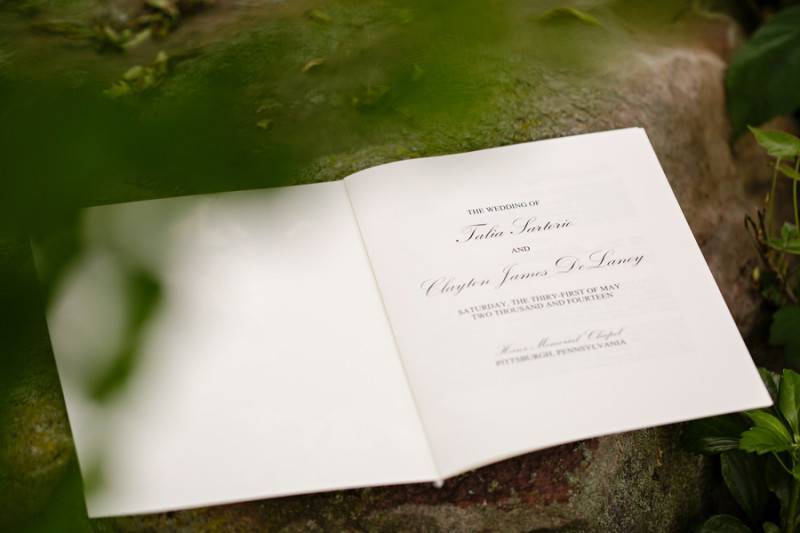 THE WEDDING OF
Talia Sartorio
AND
Clayton James DeLaney
SATURDAY, THE THIRY-FIRST OF MAY
TWO THOUSAND AND FOURTEEN
Heinz Memorial Chapel
PITTSBURGH, PENNSYLVANIA